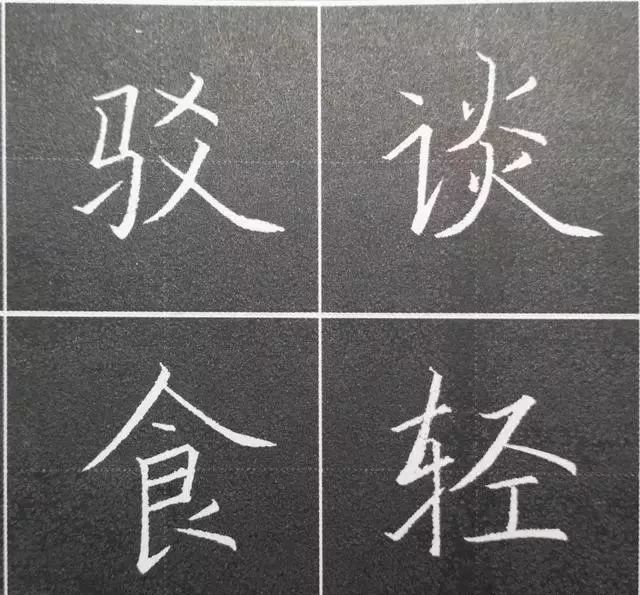 驳谈
食轻